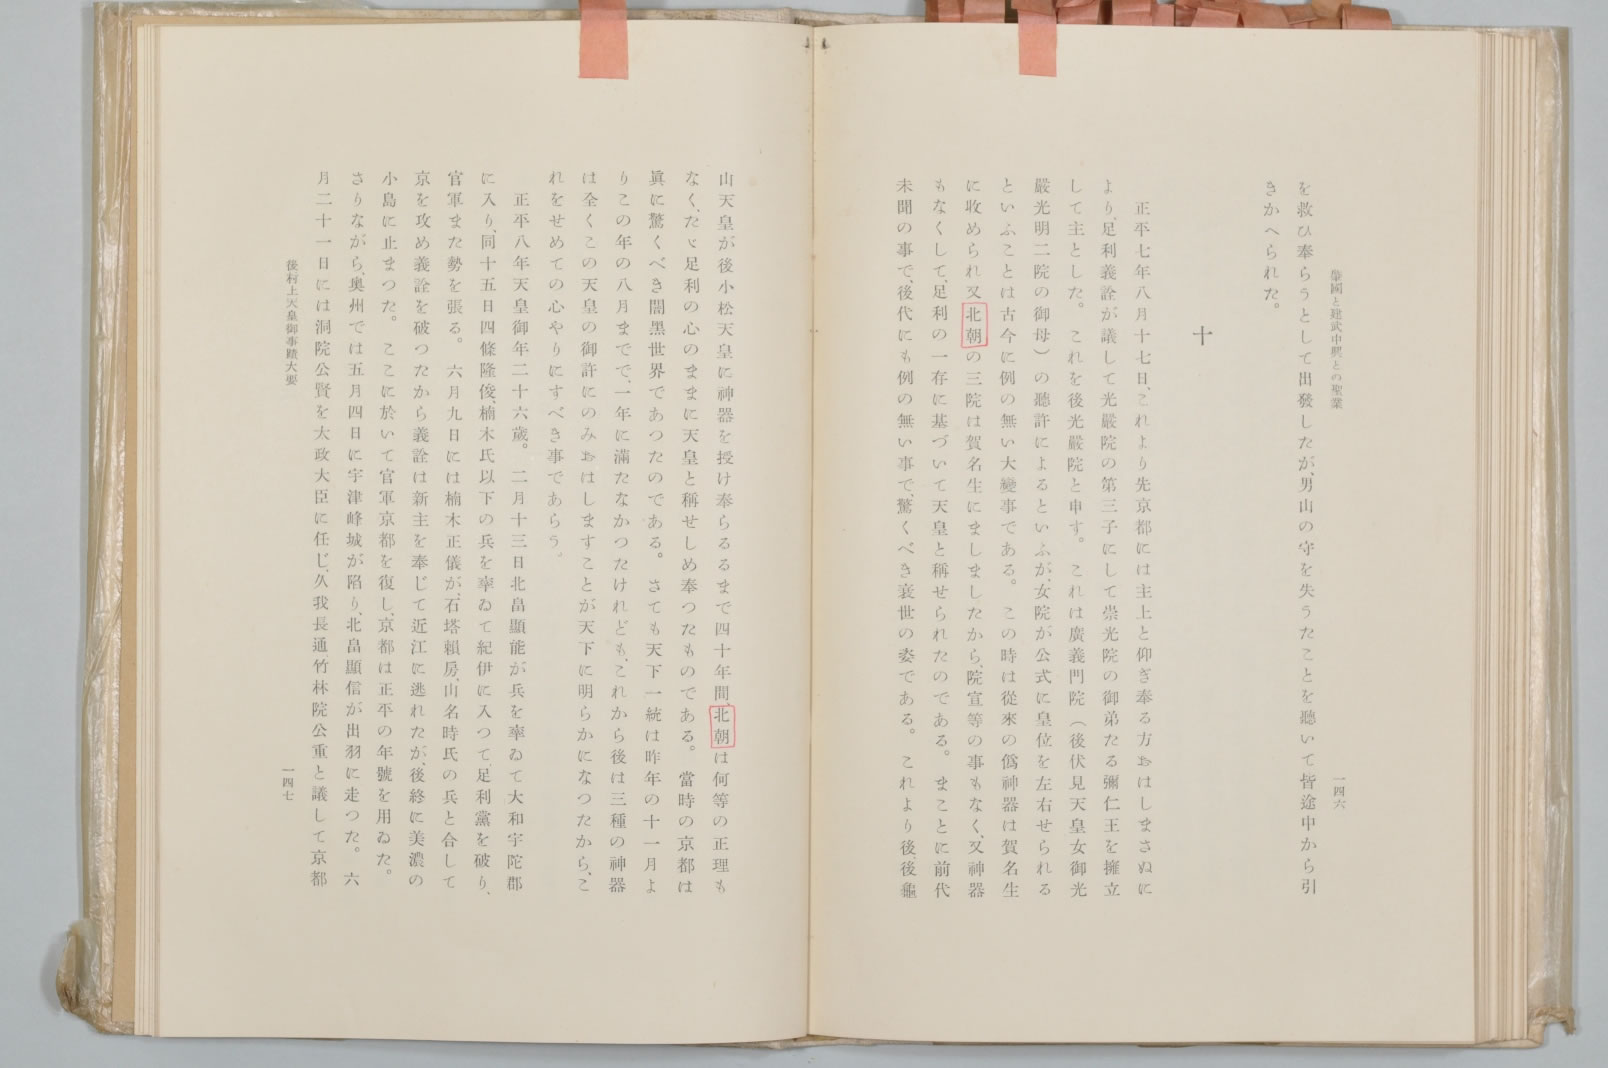 肇國と建武中興との聖業
一四六
を救ひ奉らうとして出發したが、男山の守を失うたことを聽いて皆途中から引
きかへられた。
十
正平七年八月十七日、これより先京都には主上と仰ぎ奉る方おはしまさぬに
より、足利義詮が議して光嚴院の第三子にして崇光院の御弟たる彌仁王を擁立
して主とした。これを後光嚴院と申す。これは廣義門院（後伏見天皇女御光
嚴光明二院の御母）の聽許によるといふが、女院が公式に皇位を左右せられる
といふことは古今に例の無い大變事である。この時は從來の僞神器は賀名生
に收められ又北朝の三院は賀名生にましましたから、院宣等の事もなく、又神器
もなくして、足利の一存に基づいて天皇と稱せられたのである。まことに前代
未聞の事で、後代にも例の無い事で、驚くべき衰世の姿である。これより後、後龜
山天皇が後小松天皇に神器を授け奉らるるまで四十年間、北朝は何等の正理も
なく、たゞ足利の心のままに天皇と稱せしめ奉つたものである。當時の京都は
眞に驚くべき闇黑世界であつたのである。さても天下一統は昨年の十一月よ
りこの年の八月までで、一年に滿たなかつたけれども、これから後は三種の神器
は全くこの天皇の御許にのみおはしますことが天下に明らかになつたから、こ
れをせめての心やりにすべき事であらう。
正平八年天皇御年二十六歲。二月十三日北畠顯能が兵を率ゐて大和宇陀郡
に入り、同十五日四條隆俊、楠木氏以下の兵を率ゐて紀伊に入つて足利黨を破り、
官軍また勢を張る。六月九日には楠木正儀が、石塔賴房、山名時氏の兵と合して
京を攻め義詮を破つたから義詮は新主を奉じて近江に逃れたが、後終に美濃の
小島に止まつた。ここに於いて官軍京都を復し、京都は正平の年號を用ゐた。
さりながら、奧州では五月四日に宇津峰城が陷り、北畠顯信が出羽に走つた。六
月二十一日には洞院公賢を太政大臣に任じ、久我長通竹林院公重と議して京都
後村上天皇御事蹟大要
一四七